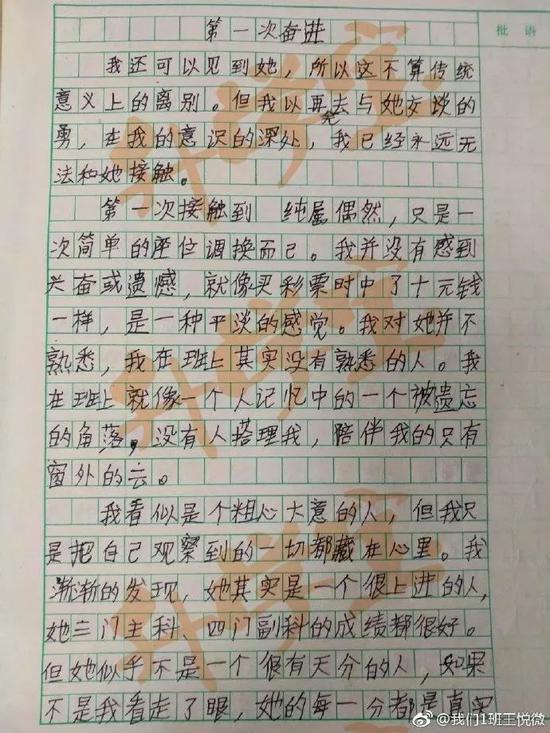 批语
第一次奋进
我还可以见到她，所以这不算传统
意义上的离别。但我以再去与她交谈的
勇，在我的意识的深处，我已经永远无
法和她接触。
第一次接触到 纯属偶然，只是一
次简单的座位调换而已。我并没有感到
兴奋或遗憾，就像买彩票时中了十元钱
一样，是一种平淡的感觉。我对她并不
熟悉，我在班上其实没有熟悉的人。我
在班上就像一个人记忆中的一个被遗忘
的角落，没有人搭理我，陪伴我的只有
窗外的云。
我看似是个粗心大意的人，但我只
是把自己观察到的一切都藏在心里。我
渐渐的发现，她其实是一个很上进的人，
她三门主科、四门副科的成绩都很好。
但她似乎不是一个很有天分的人，如果
不是我看走了眼，她的每一分都是真实
@我们1班王悦微